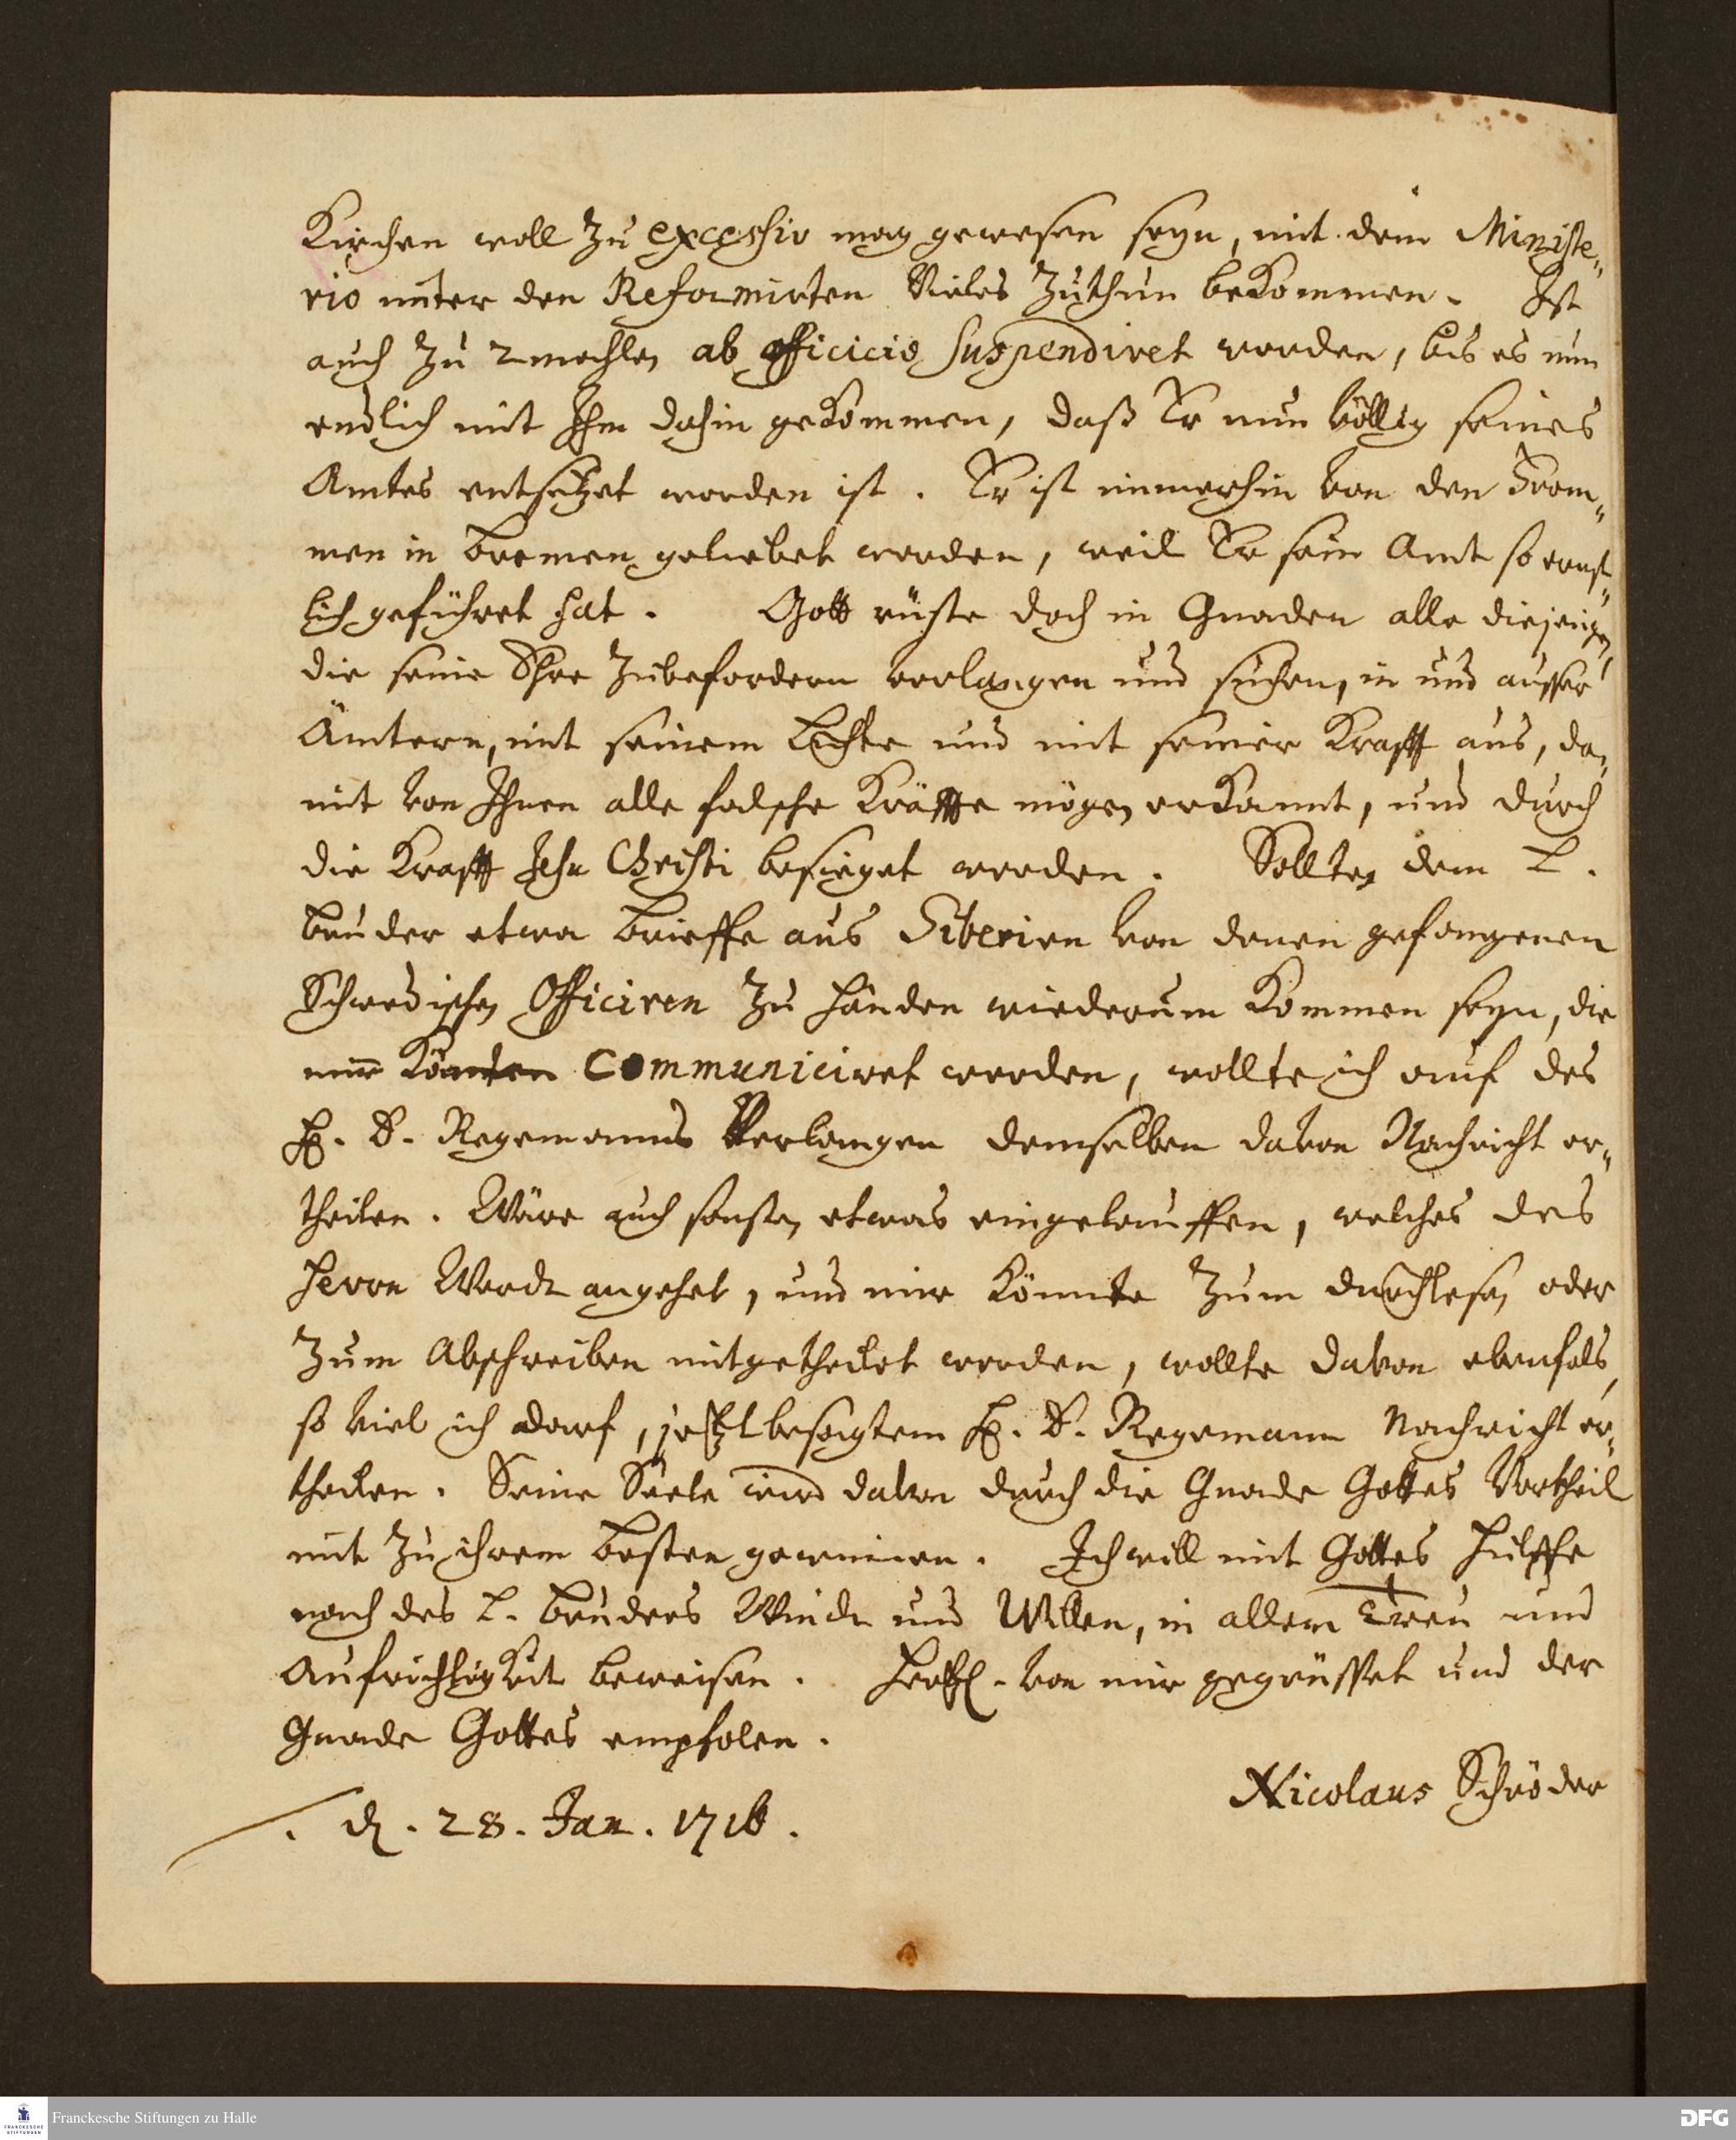 Kirchen woll zu excessiv mag gewesen seyn, mit dem Ministe„
rio unter den Reformirten Vieles zuthun bekommen. Ist
auch zu 2 mahlen ab officicio Suspendiret worden, bis es nun
endlich mit Ihm dahin gekommen, daß Er nun völlig seines
Amtes entsetzet worden ist. Er ist immerhin von den From„
men in Bremen geliebet worden, weil Er sein Amt so ernst„
lich geführet hat. Gott rüste doch in Gnaden alle diejenigen
die seine Ehre zubefordern verlangen und suchen, in und ausser
Ämtern, mit seinem Lichte und mit seiner Krafft aus, da„
mit von Ihnen alle falsche Kräffte mögen erkannt, und durch
die Krafft Jesu Christi besieget werden. Sollten dem L.
Bruder etwa Brieffe aus Siberien von denen gefangenen
Schwedischen Officiren zu Handen wiederum kommen seyn, die
mir könten communiciret werden, wollte ich auf des
H. D. Regemanns Verlangen demselben davon Nachricht er„
theilen. Wäre auch sonsten etwas eingelauffen, welches des
Herrn Werck angehet, und mir könnte zum durchlesen oder
zum Abschreiben mitgetheilet werden, wollte davon ebenfals,
so viel ich darf, jetztbesagtem H. D. Regemann Nachricht er„
theilen. Seine Seele wird davon durch die Gnade Gottes Vortheil
mit zu ihrem Besten gewinnen. Ich will mit Gottes Hülffe
nach des L. Bruders Winck und Willen, in allem Treu und
Aufrichtigkeit beweisen. Hertzl. von mir gegrüsset und der
Gnade Gottes empfolen.
Nicolaus Schröder
d. 28. Jan. 1716.
FRANCKESCHE STIFTUNGEN
Franckesche Stiftungen zu Halle
DFG